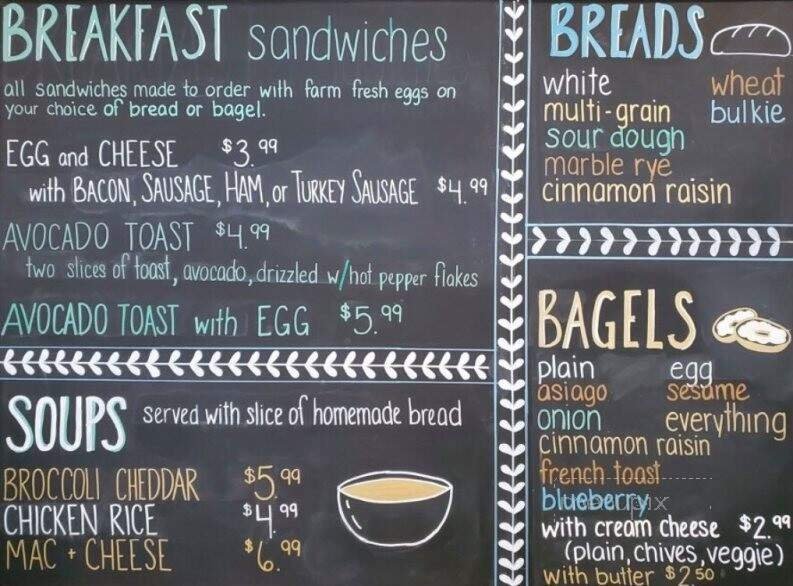 BREAKFAST sandwiches
all sandwiches made to order with farm fresh eggs on
your choice of bread or bagel.
EGG and CHEESE $3.99
with BACON, SAUSAGE, HAM, or TURKEY SAUSAGE $4.99
AVOCADO TOAST $4.99
two slices of toast, avocado, drizzled w/hot pepper flakes
AVOCADO TOAST with EGG $5.99
SOUPS served with slice of homemade bread
BROCCOLI CHEDDAR $5.99
CHICKEN RICE $4.99
MAC + CHEESE $6.99
BREADS
white wheat
multi-grain bulkie
sour dough
marble rye
cinnamon raisin
BAGELS
plain egg
asiago sesame
onion everything
cinnamon raisin
french toast
blueberry
with cream cheese $2.99
(plain, chives, veggie)
with butter $2.50